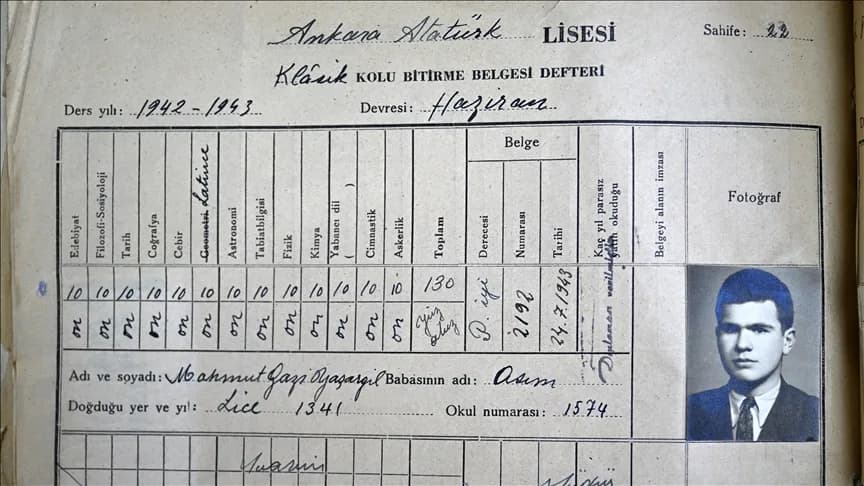 Ankara Atatürk LİSESİ Sahife: 22
Klâsik KOLU BİTİRME BELGESİ DEFTERİ
Ders yılı: 1942 - 1943 Devresi: Haziran
Belge
Edebiyat Filozofi-Sosiyoloji Tarih Coğrafya Cebir Geometri Latince Astronomi Tabiatbilgisi Fizik Kimya Yabancı dil ( ) Cimnastik Askerlik Toplam Derecesi Numarası Tarihi Kaç yıl parasız yatılı okuduğu Belgeyi alanın imzası Fotoğraf
10 10 10 10 10 10 10 10 10 10 10 10 10 130 P. iyi 2192 24.7.1943
on on on on on on on on on on on on on yüz otuz
Adı ve soyadı: Mahmut Gazi Yaşargil Babasının adı: Asım
Doğduğu yer ve yıl: Lice 1341 Okul numarası: 1574